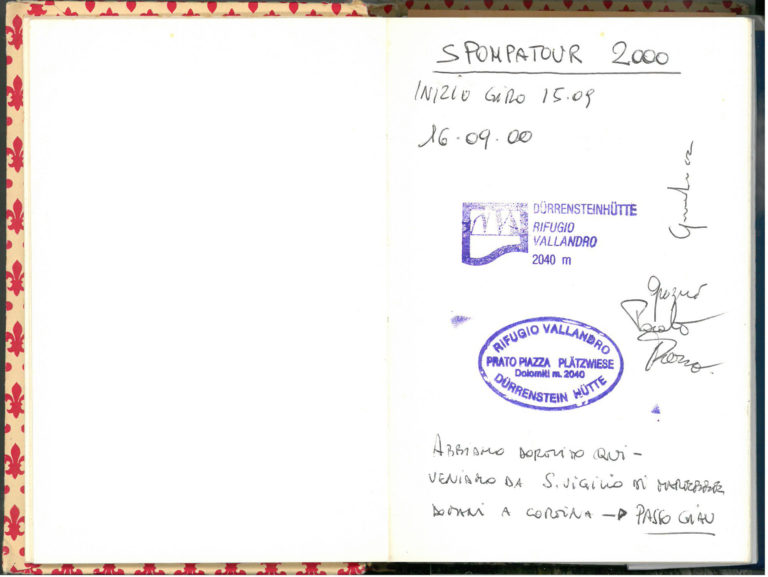 SPOMPATOUR 2000
INIZIO GIRO 15.09
16.09.00
DÜRRENSTEINHÜTTE
RIFUGIO
VALLANDRO
2040 m
RIFUGIO VALLANDRO
PRATO PIAZZA PLÄTZWIESE
Dolomiti m. 2040
DÜRRENSTEIN HÜTTE
ABBIAMO DORMITO QUI -
VENIAMO DA S. VIGILIO DI MAREBBE
DOMANI A CORTINA → PASSO GIAU